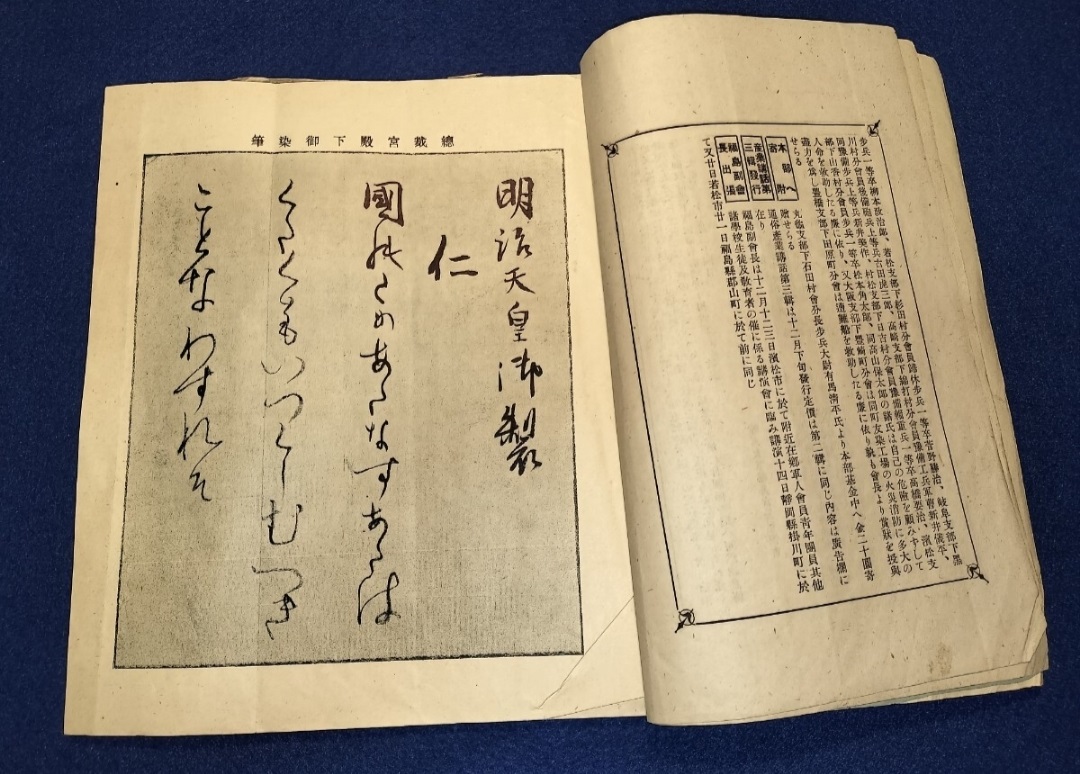 歩兵一等卒柳本政治郎、若松支部下杉田村分會員歸休歩兵一等卒菅野勝治、岐阜支部下黑
川村分會員後備砲兵上等兵吉田虎三郎、高崎支部下綿打村分會員豫備工兵軍曹新井儀平、
同豫備歩兵上等兵新井築作、村松支部下日吉村分會員豫備輜重兵一等卒高橋要治、濱松支
部下山香村分會員歩兵一等卒松本角太郎、同高山保太郎の諸氏は自己の危險を顧みずして
人命を救助したる廉に依り、又大阪支部下豐崎町分會は同町友染工場の火災消防に多大の
盡力を爲し豐橋支部下田原町分會は遭難船を救助したる廉に依り孰も會長より賞狀を授與
せらる
本部へ寄附
支部下石田村會分長歩兵大尉有馬淸平氏より本部基金中へ金二十圓寄
贈せらる
産業講話第三輯發行
通俗産業講話第三輯は十二月下旬發行定價は第二輯に同じ內容は廣吿欄に
在り
福島副會長出張
福島副會長は十二月十二三日濱松市に於て附近在鄕軍人會員靑年團員其他
諸學校生徒及敎育者の催に係る講演會に臨み講演十四日靜岡縣掛川町に於
て又廿日若松市廿一日福島縣郡山町に於て前に同じ
總裁宮殿下御染筆
明治天皇御製
仁
國のためあたなすあたは
くたくともいつくしむへき
ことなわすれそ